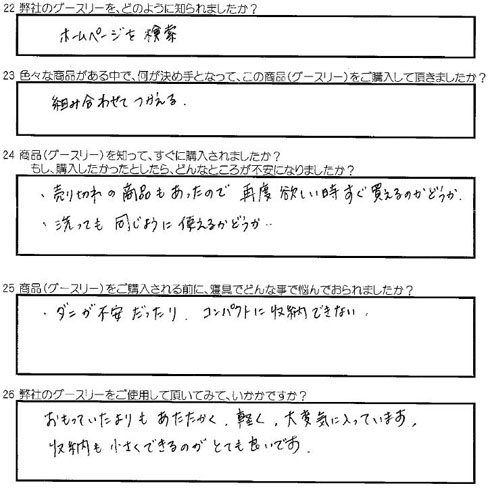 22 弊社のグースリーを、どのように知られましたか？
ホームページを検索
23 色々な商品がある中で、何が決め手となって、この商品(グースリー)をご購入して頂きましたか？
組み合わせてつかえる.
24 商品(グースリー)を知って、すぐに購入されましたか？
もし、購入したかったとしたら、どんなところが不安になりましたか？
・売り切れの商品もあったので 再度欲しい時すぐ買えるのかどうか.
・洗っても同じように使えるかどうか‥
25 商品(グースリー)をご購入される前に、寝具でどんな事で悩んでおられましたか？
・ダニが不安だったり、コンパクトに収納できない.
26 弊社のグースリーをご使用して頂いてみて、いかかですか？
おもっていたよりもあたたかく、軽く、大変気に入っています。
収納も小さくできるのがとても良いです.